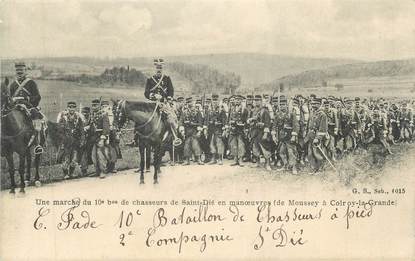 G. B., Seb., 1015
Une marche du 10e bon de chasseurs de Saint-Dié en manœuvres (de Moussey à Colroy-la-Grande)
C. Fade 10e Bataillon de Chasseurs à pied
2e Compagnie St Dié